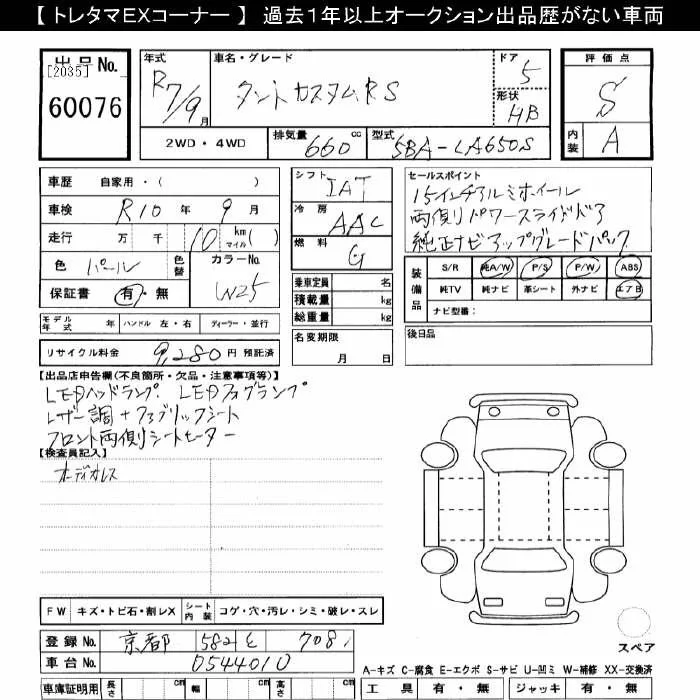 【 トレタマEXコーナー 】 過去１年以上オークション出品歴がない車両
出品No. [2035] 60076
年式 R7/9月
車名・グレード タントカスタムRS
ドア 5
形状 HB
評価点 S
内装 A
2WD・4WD
排気量 660 cc
型式 5BA-LA650S
車歴 自家用・( )
車検 R10 年 9 月
走行 万 千 10 km マイル( )
色 パール
色替
カラーNo. W25
保証書 有・無
シフト IAT
冷房 AAC
燃料 G
乗車定員 名
積載量 kg
総重量 kg
セールスポイント
15インチアルミホイール
両側パワースライドドア
純正ナビアップグレードパック
装備品
S/R 純A/W P/S P/W ABS
純TV 純ナビ 革シート 外ナビ エアB
ナビ型番：
モデル年式 年 ハンドル 左・右 ディーラー・並行
名変期限 月 日
後日品
リサイクル料金 9,280 円 預託済
【出品店申告欄(不良箇所・欠品・注意事項等)】
LEDヘッドランプ. LEDフォグランプ
レザー調+ファブリックシート
フロント両側シートヒーター
【検査員記入】
オーディオレス
FW キズ・トビ石・割レX
シート内装 コゲ・穴・汚レ・シミ・破レ・スレ
登録No. 京都 582 を 708
車台No. 0544010
スペア
A-キズ C-腐食 E-エクボ S-サビ U-凹ミ W-補修 XX-交換済
車庫証明用 長さ cm 幅 cm 高さ cm
工具 有・無 ジャッキ 有・無